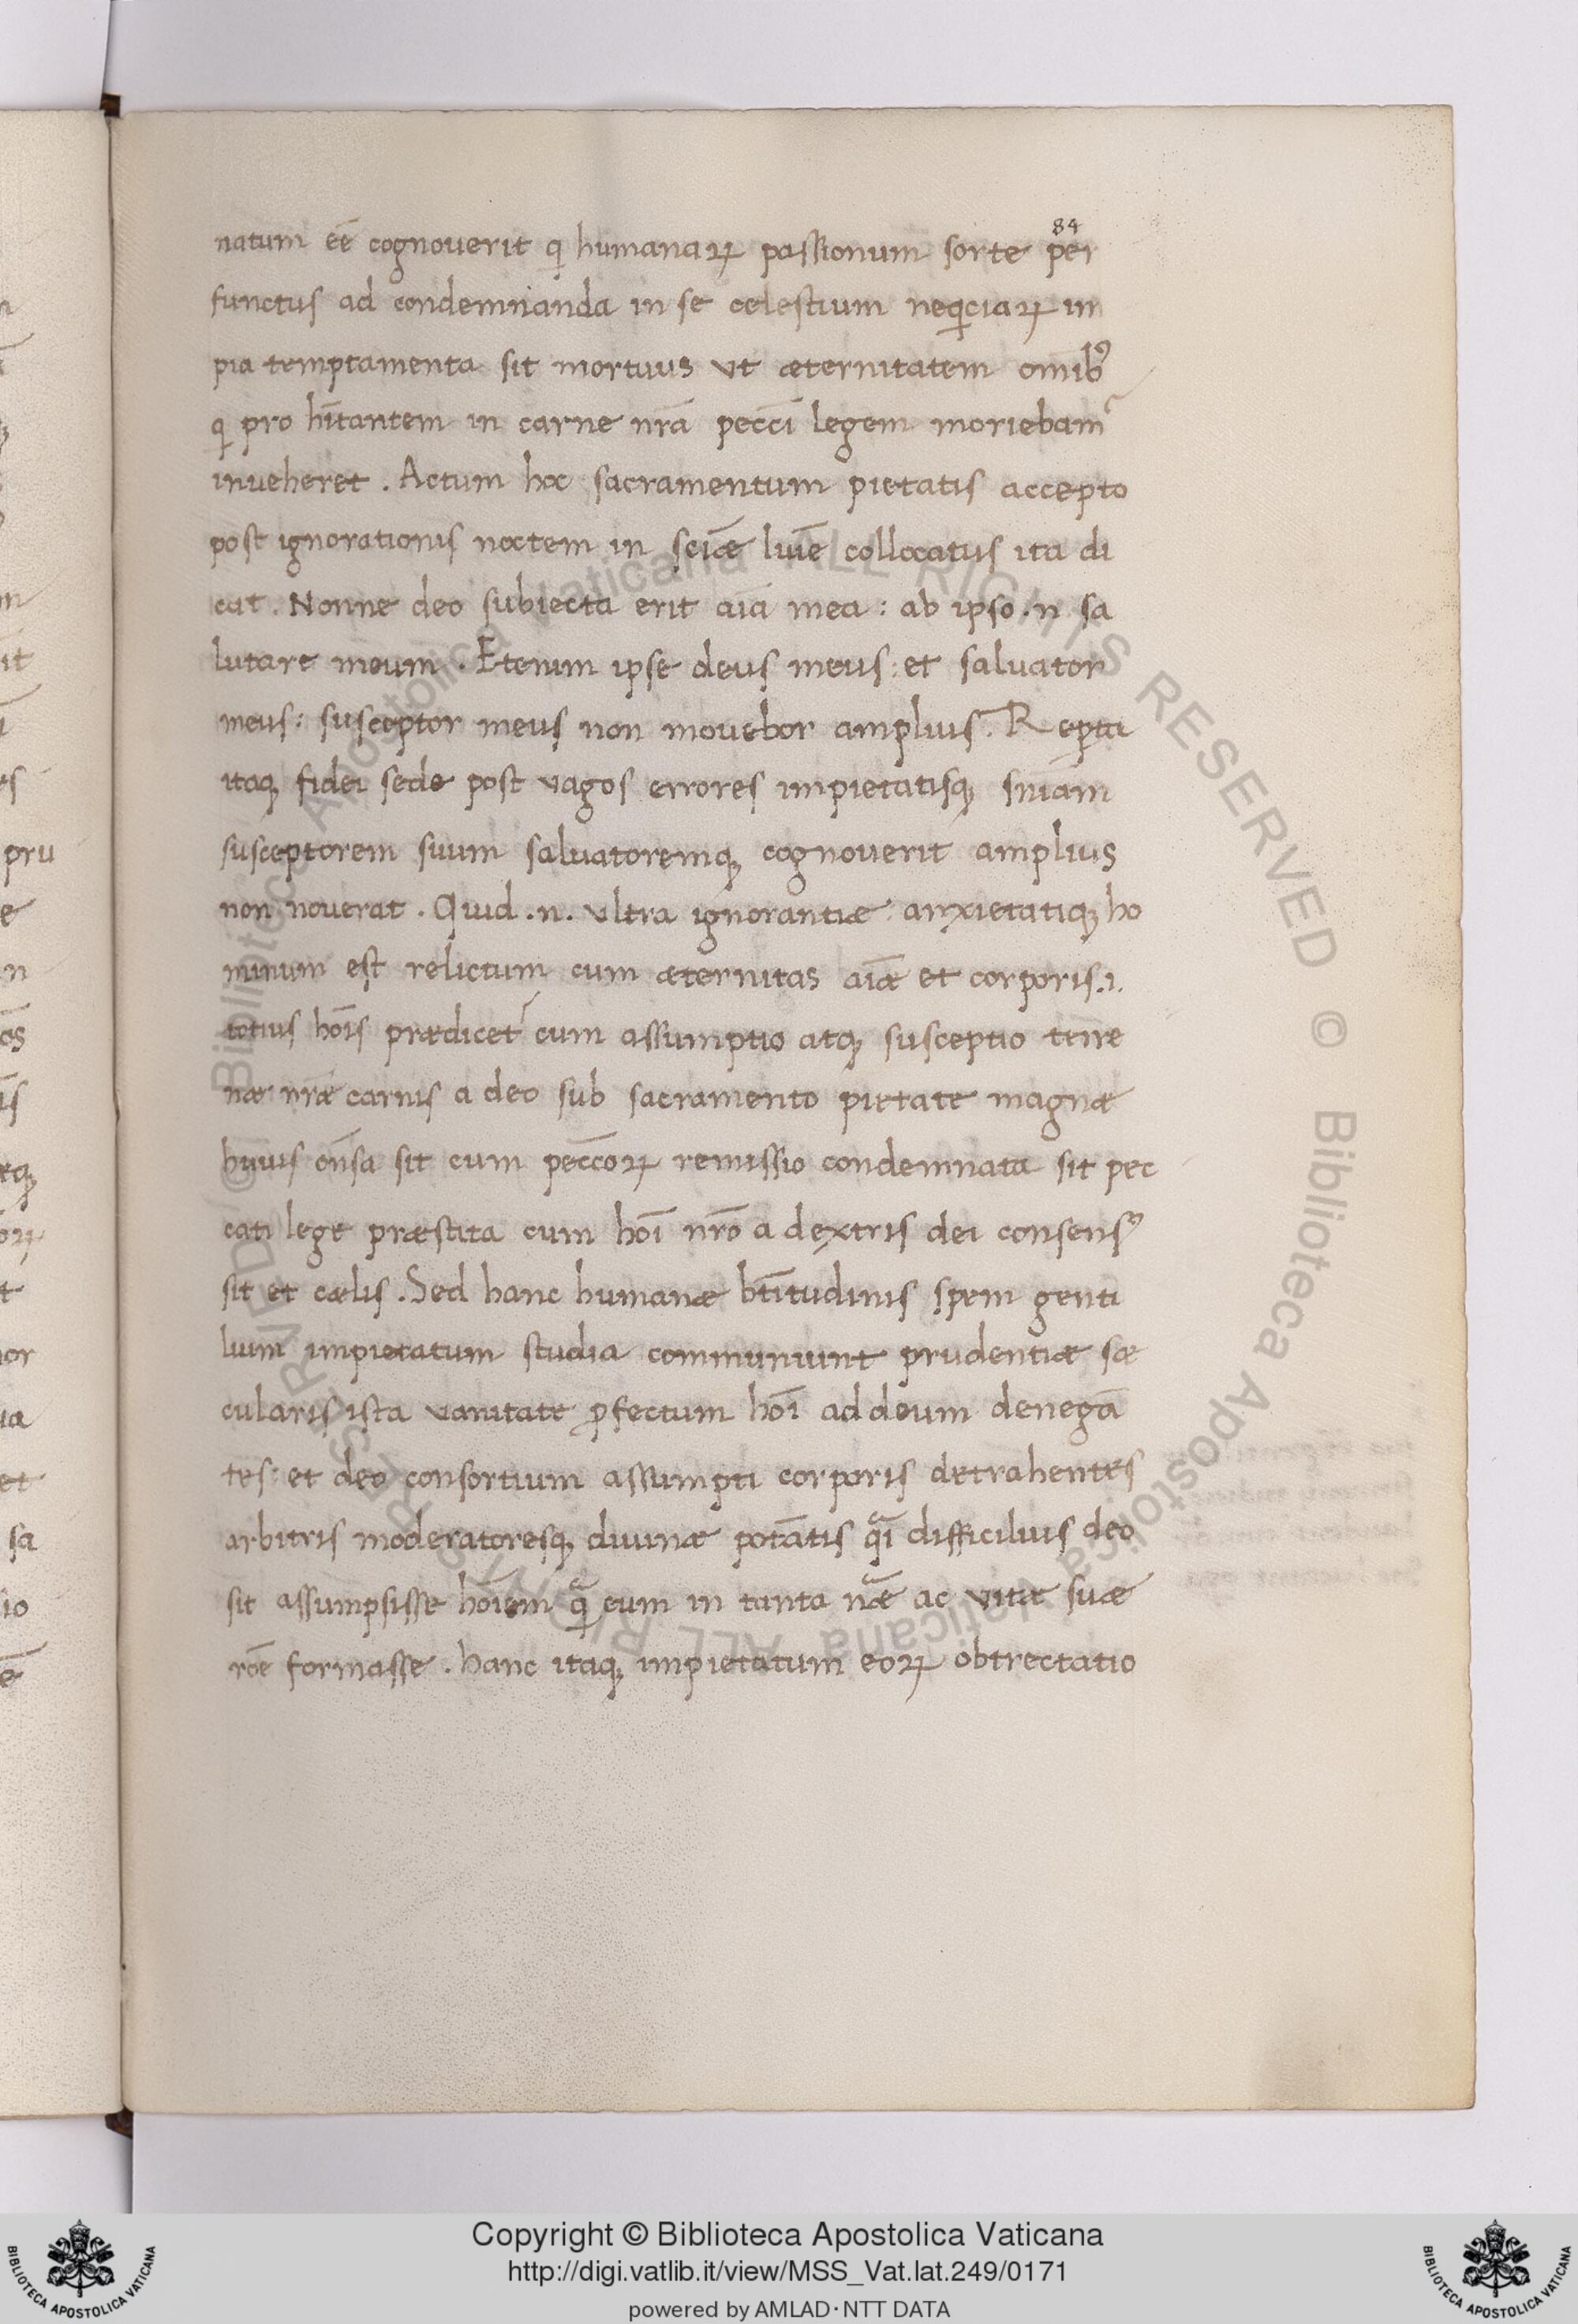 84
natum eē cognouerit q humanaꝝ passionum sorte per
functus ad condemnanda in se celestium neqͥciaꝝ im
pia temptamenta sit mortuus vt æternitatem omībꝰ
q pro hītantem in carne nrā peccī legem moriebam᷑
inueheret . Actum hoc sacramentum pietatis accepto
post ignorationis noctem in sciǣ luīe collocatus ita di
cat . Nonne deo subiecta erit aīa mea : ab ipso .n. sa
lutare meum . Etenim ipse deus meus : et saluator
meus : susceptor meus non mouebor amplius . Reꝑta
itaqꝫ fidei sede post vagos errores impietatisqꝫ sniām
susceptorem suum saluatoremqꝫ cognouerit amplius
non nouerat . Quid .n. vltra ignorantiæ anxietatiqꝫ ho
minum est relictum cum æternitas aīæ et corporis .i.
totius hoīs prædicet᷑ cum assumptio atqꝫ susceptio terre
næ nrǣ carnis a deo sub sacramento pietate magnæ
huius ōnsa sit cum peccōꝝ remissio condemnata sit pec
cati lege præstita cum hoī nrō a dextris dei consensꝰ
sit et cælis . Sed hanc humanæ btītudinis spem genti
lium impietatum studia communiunt prudentiæ sæ
cularis ista vanitate ꝓfectum hoī ad deum denegā
tes : et deo consortium assumpti corporis detrahentes
arbitris moderatoresqꝫ diuinæ potātis qͣi difficilius deo
sit assumpsisse hoīem qͣ cum in tanta nǣ ac vitæ suæ
roē formasse . hanc itaqꝫ impietatum eoꝝ obtrectatio
Copyright © Biblioteca Apostolica Vaticana
http://digi.vatlib.it/view/MSS_Vat.lat.249/0171
powered by AMLAD·NTT DATA
BIBLIOTECA APOSTOLICA VATICANA
BIBLIOTECA APOSTOLICA VATICANA